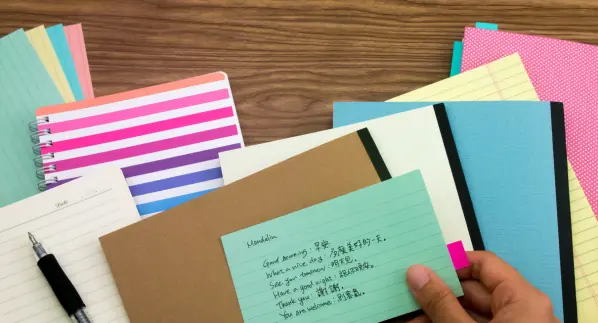 Mandarin
Good morning : 早安
What a nice day : 多麼美好的一天.
See you tomorrow : 明天見.
Have a good night : 祝你晚安.
Thank you : 謝謝.
You are welcome : 別客氣.
Date